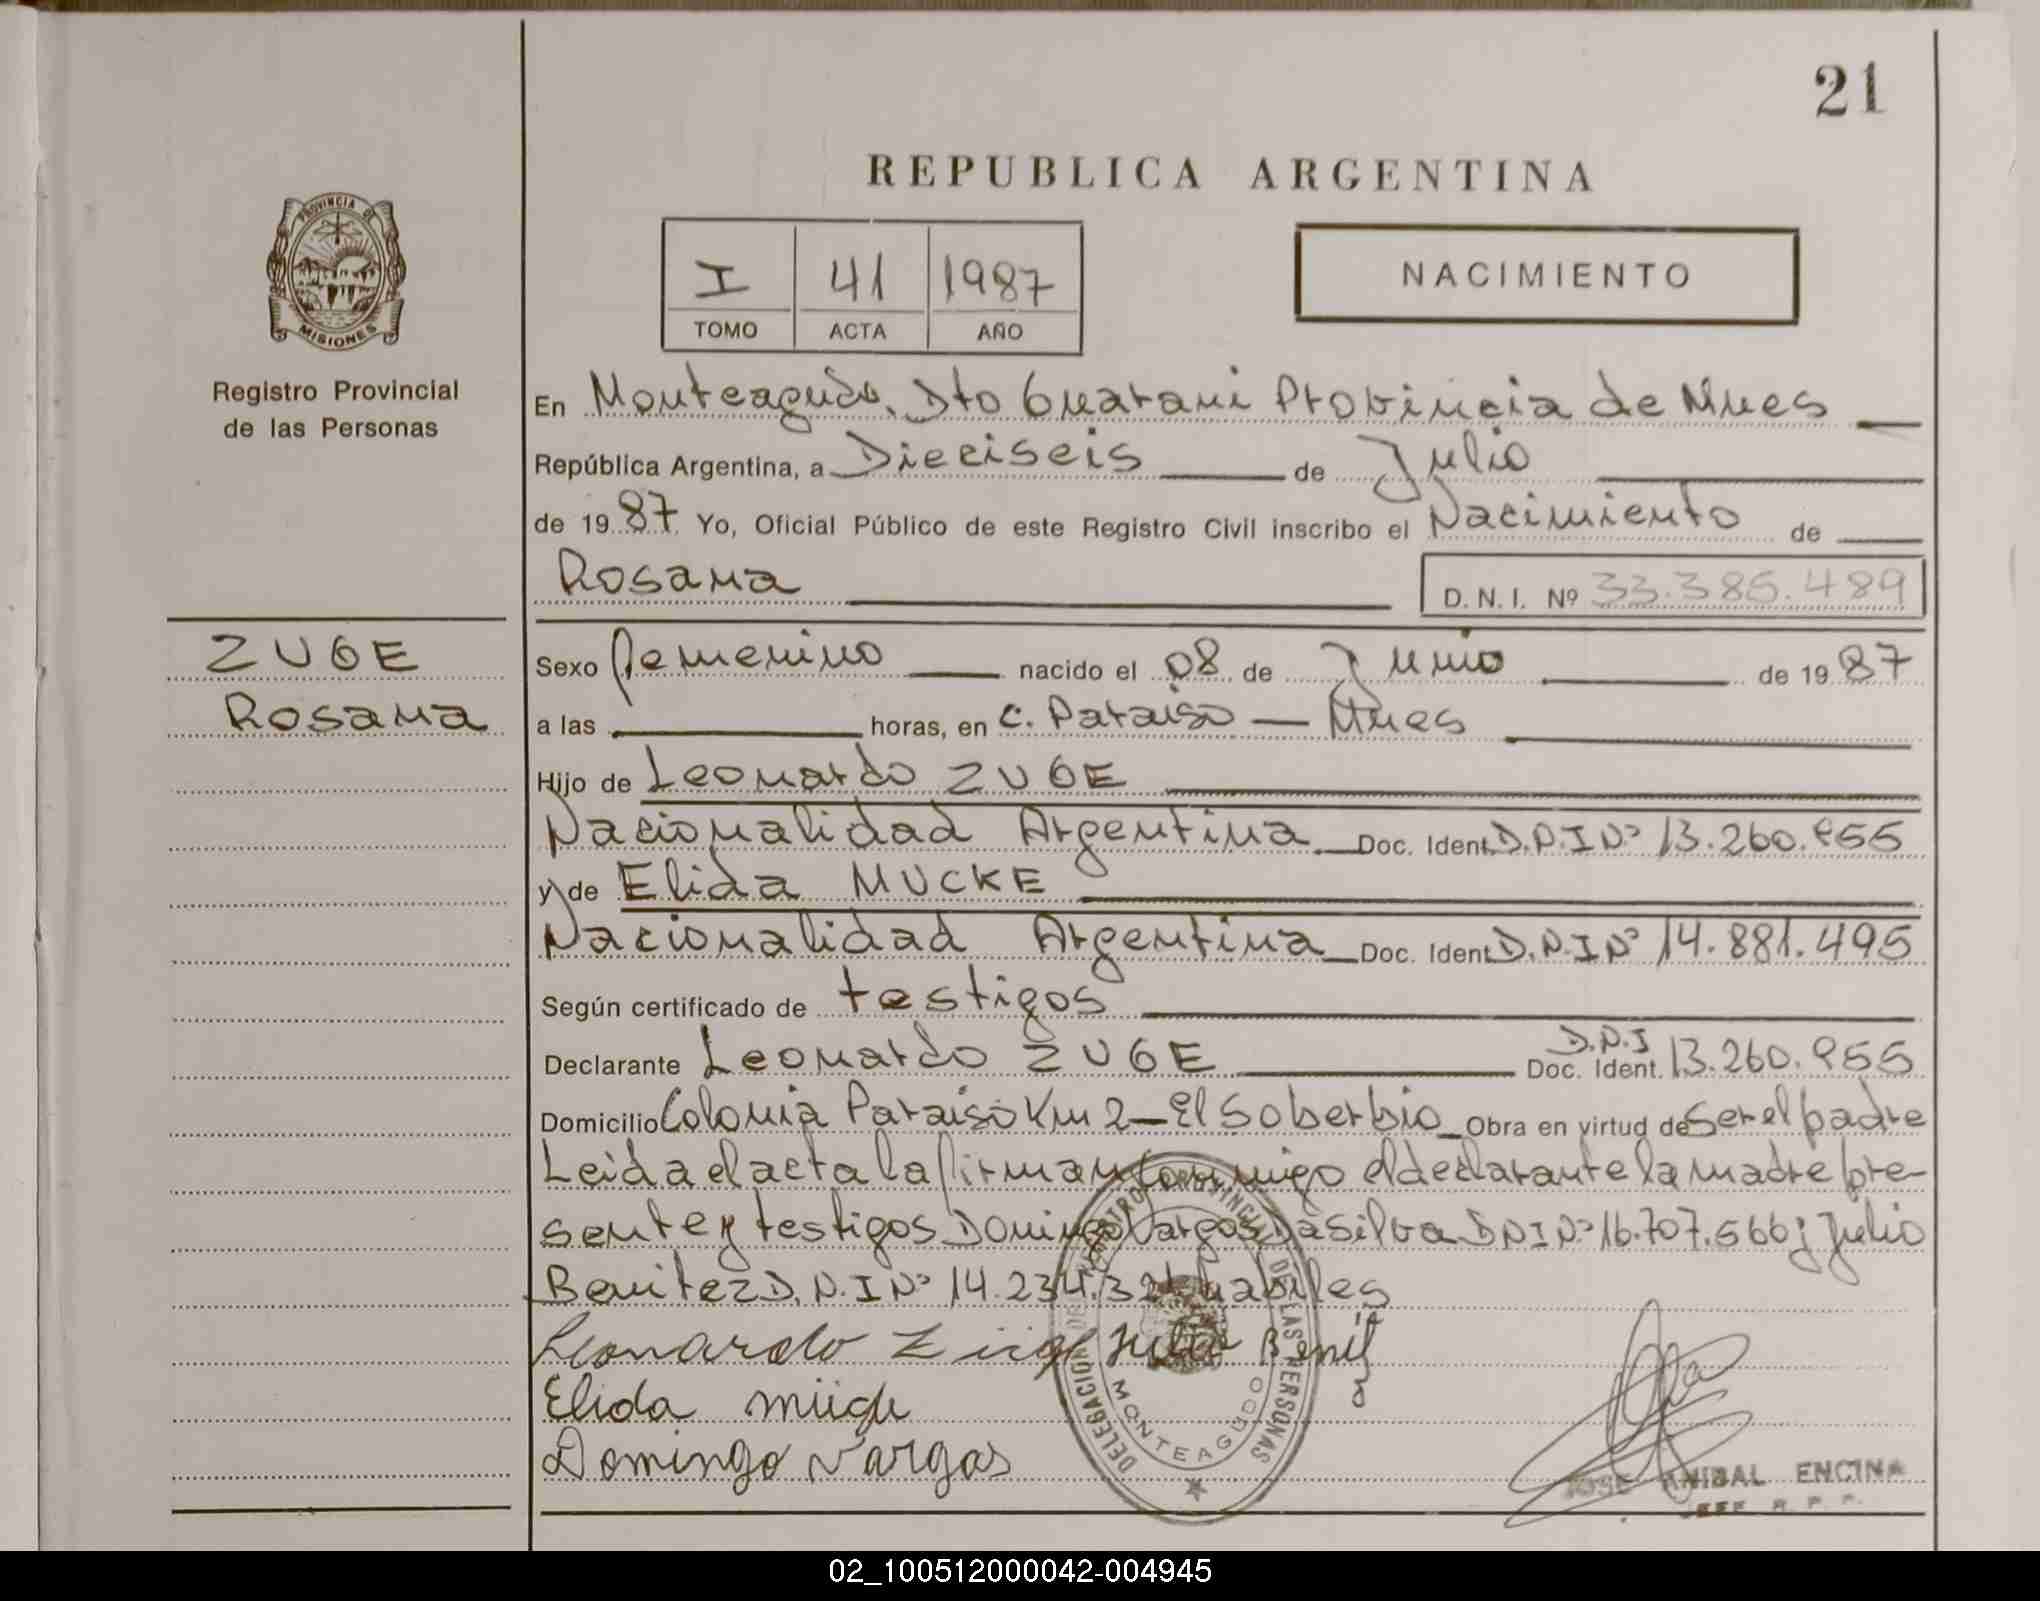 21
REPUBLICA ARGENTINA
PROVINCIA DE
MISIONES
Registro Provincial
de las Personas
I 41 1987
TOMO ACTA AÑO
NACIMIENTO
En Monteagudo, Dto Guarani Provincia de Mnes
República Argentina, a Dieciseis de Julio
de 1987 Yo, Oficial Público de este Registro Civil inscribo el Nacimiento de
Rosana D. N. I. Nº 33.385.489
ZUGE
Rosana
Sexo femenino nacido el 08 de Junio de 1987
a las horas, en C. Paraiso — Mnes
Hijo de Leonardo ZUGE
Nacionalidad Argentina Doc. Ident. D.N.I Nº 13.260.955
y de Elida MUCKE
Nacionalidad Argentina Doc. Ident. D.N.I Nº 14.881.495
Según certificado de testigos
Declarante Leonardo ZUGE Doc. Ident. D.N.I 13.260.955
Domicilio Colonia Paraiso Km 2 — El Soberbio Obra en virtud de Ser el padre
Leida el acta la firman conmigo el declarante la madre pre-
sente y testigos Domingo Vargas Da Silva DNI Nº 16.707.566 y Julio
Benitez D.N.I Nº 14.234. habiles
Leonardo Züge Julio Benitz
Elida
Domingo Vargas
DELEGACION DE REGISTRO PROVINCIAL DE LAS PERSONAS
MONTEAGUDO
JOSE ANIBAL ENCINA
02_100512000042-004945